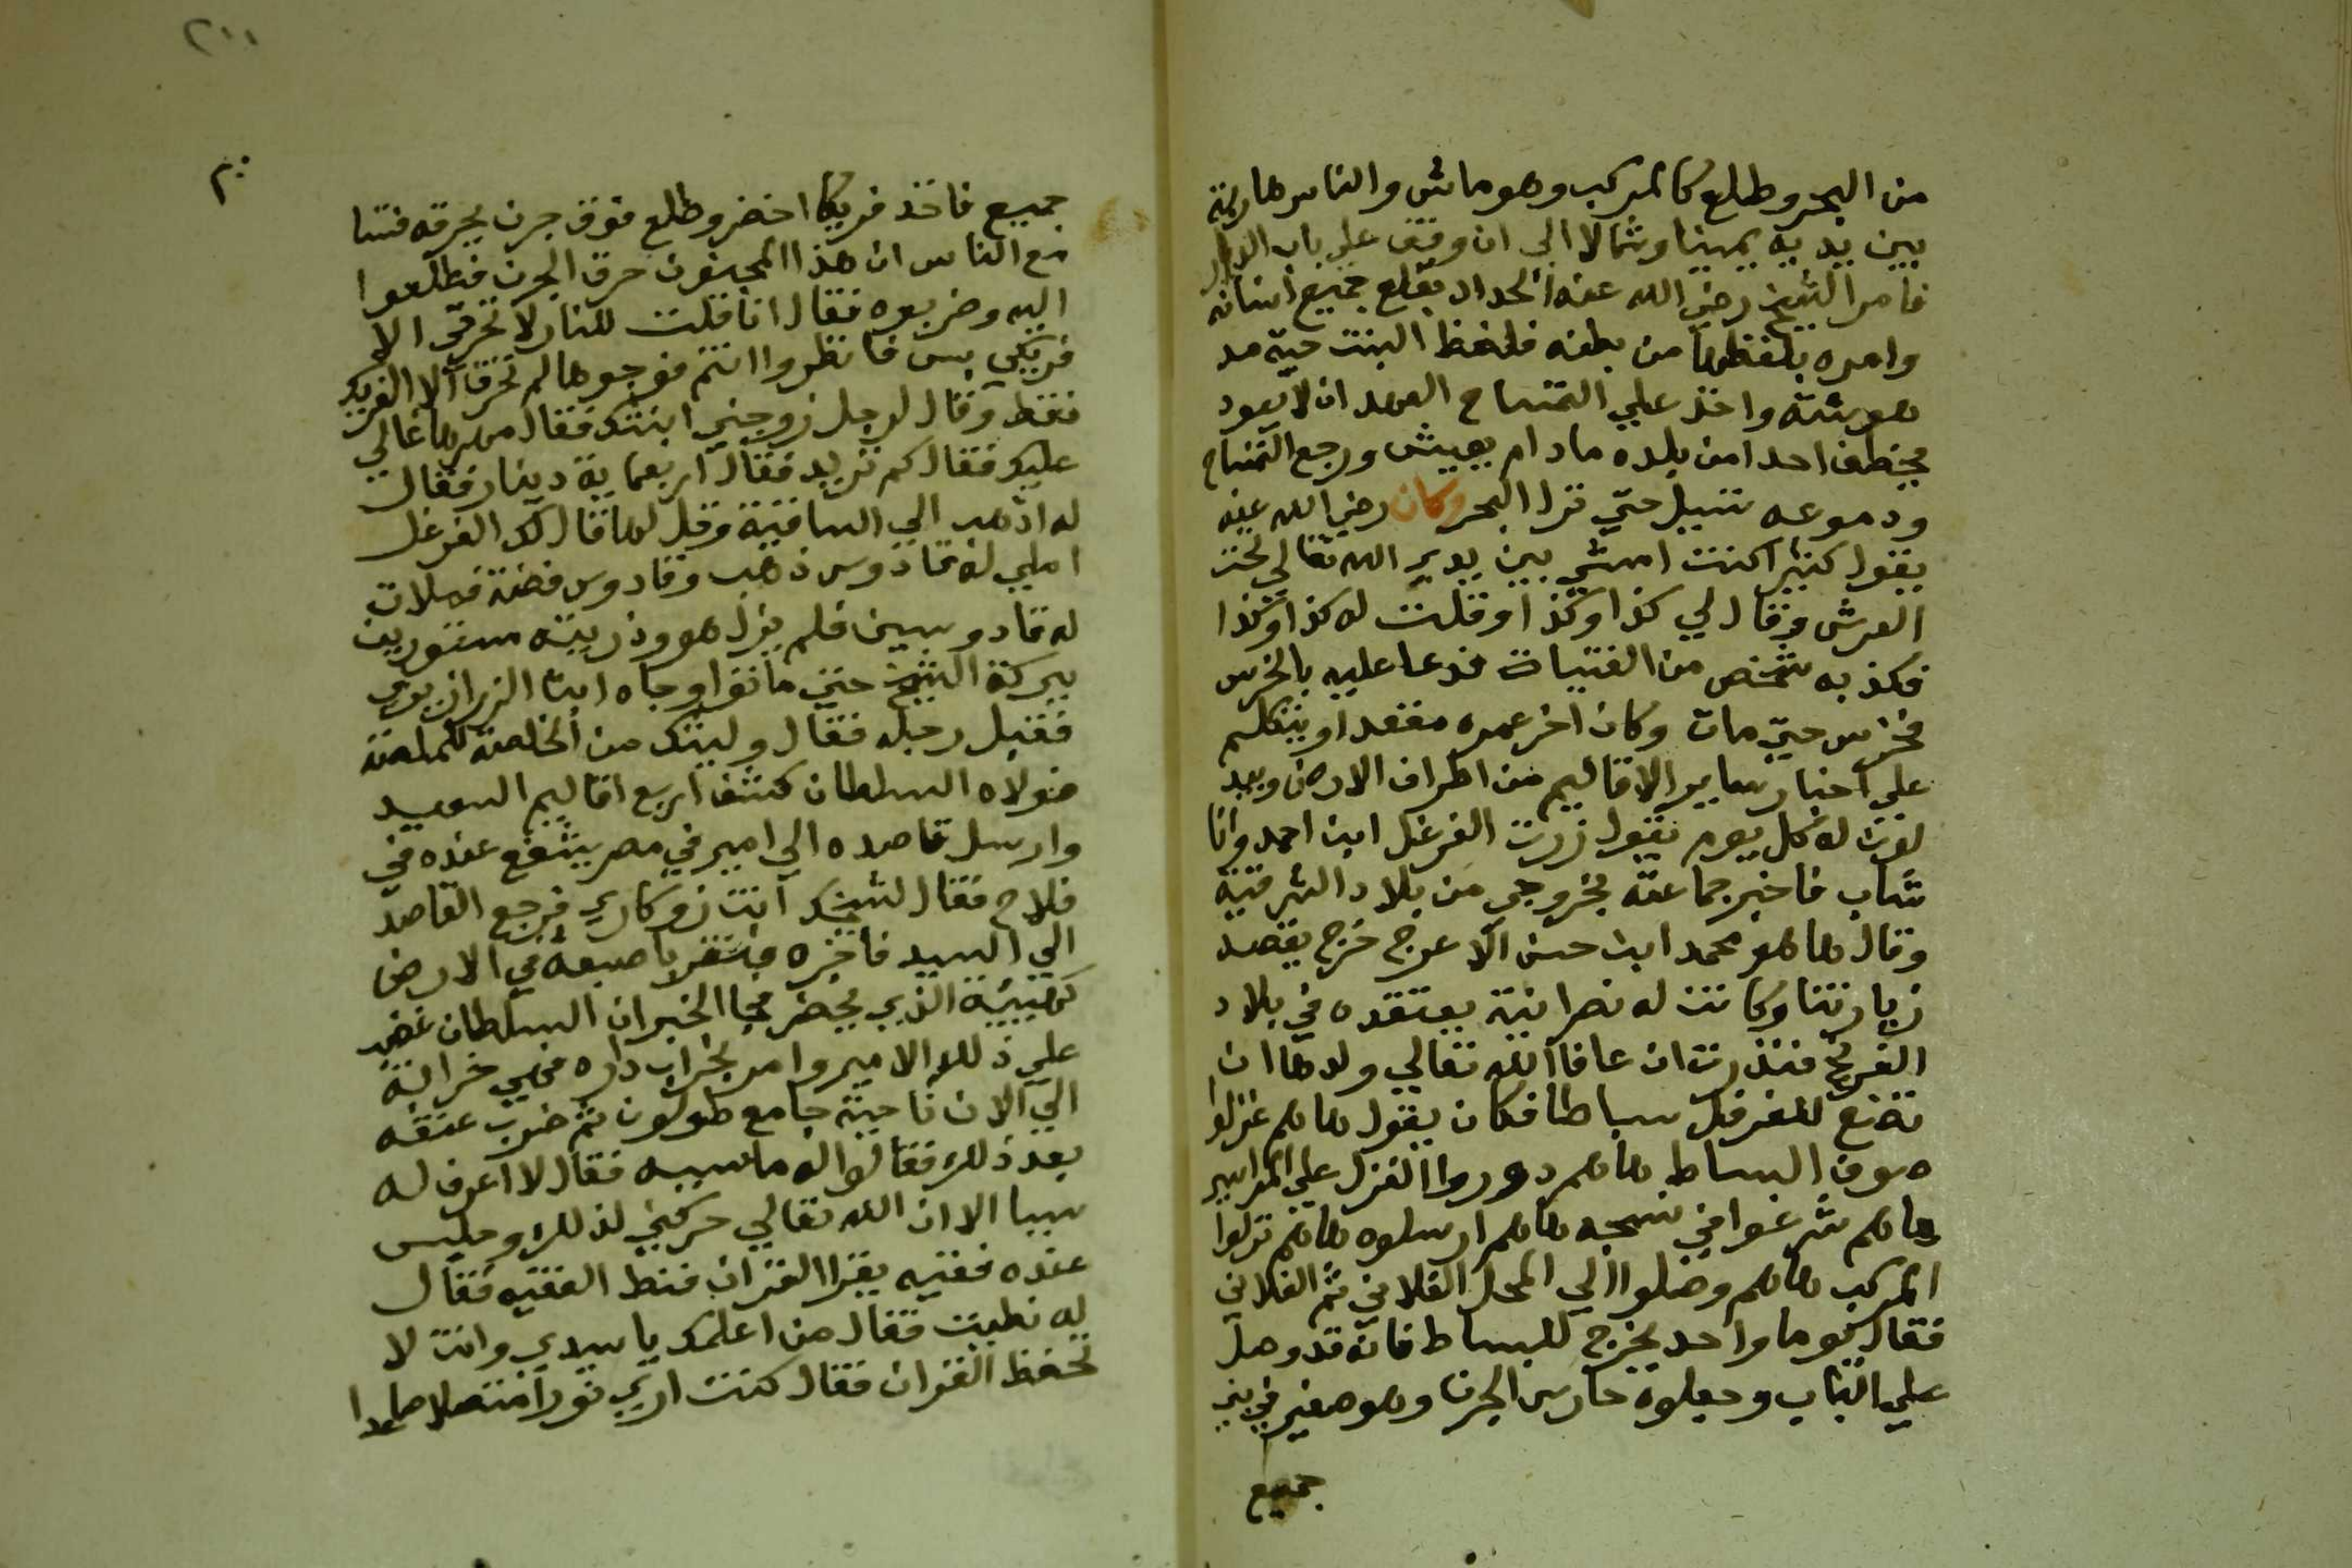 من البحر وطلع كالمركب وهو ماش والناس هاربة
بين يديه يمينا وشمالا الي ان وقف علي باب الدار
فامر الشيخ رضي الله عنه الحداد بقلع جميع اسنانه
وامره بلفظها من بطنه فلفظ البنت حية مد
هوشة واخذ علي التمساح العهد ان لا يعود
يخطف احدا من بلده مادام يعيش ورجع التمساح
ودموعه تسيل حتي نزل البحر وكان رضي الله عنه
يقول كثيرا كنت امشي بين يدي الله تعالي تحت
العرش وقال لي كذا وكذا وقلت له كذا وكذا
فكذبه شخص من القضاة فدعا عليه بالخرس
فخرس حتي مات وكان اخر عمره مقعدا ويتكلم
علي اخبار ساير الاقاليم من اطراف الارض
له كل يوم يقول زرت الفرغل ابن احمد وانا
شاب فاخبر جماعته بخروجي من بلاد الشرقية
وقال هاهو محمد ابن حسن الاعرج خرج يقصد
زيارتنا وكانت له نصرانية يعتقده في بلاد
الفرنج فنذرت ان عافا الله تعالي ولدها ان
تصنع للفرغل بساطا فكان يقول هاهم غزلوا
صوف البساط هاهم دوروا الغزل علي المواسير
هاهم شرعوا في نسجه هاهم ارسلوه هاهم نزلوا
المركب هاهم وصلوا الي المحل الفلاني ثم الفلاني
فقال يوما واحد يخرج للبساط فانه قد وصل
علي الباب وجعلوه حارس الجرن وهو صغير في
جميع
٢٠٠
٢٠
جميع فاخذ فريكا اخضر وطلع فوق جرن يحرقه فتسا
مع الناس ان هذا المجنون حرق الجرن فطلعوا
اليه وضربوه فقال انا قلت للنار لا تحرقي الا
فريكي بس فانظروا انتم فوجوها لم تحرق الا الفريك
فقط وقال لرجل زوجني ابنتك فقال مهرها غالي
عليك فقال كم تريد فقال اربعماية دينار فقال
له اذهب الي الساقية وقل لها قال لك الفرغل
املي له قادوس ذهب وقادوس فضة فملات
له قادوسين فلم يزل هو وذريته مستورين
ببركة الشيخ حتي ماتوا وجاه ابن الزرازيري
فقبل رجله فقال وليتك من
فولاه السلطان كشف اربع اقاليم الصعيد
وارسل قاصده الي امير في مصر يشفع عنده في
فلاح فقال لشيخك انت زوكاري فرجع القاصد
الي السيد فاخبره فنقر باصبعه في الارض
كهيئة الذي يحفر فجا الخبر ان السلطان غضب
علي ذلك الامير وامر بخراب داره فهي خرابة
الي الان ناحية جامع طولون ثم ضرب عنقه
بعد ذلك فقالوا له ما سببه فقال لا اعرف له
سببا الا ان الله تعالي حركني لذلك وجلس
عنده فقيه يقرا القران فنط الفقيه فقال
له نطيت فقال من اعلمك يا سيدي وانت لا
تحفظ القران فقال كنت اري نورا متصلا صاعدا